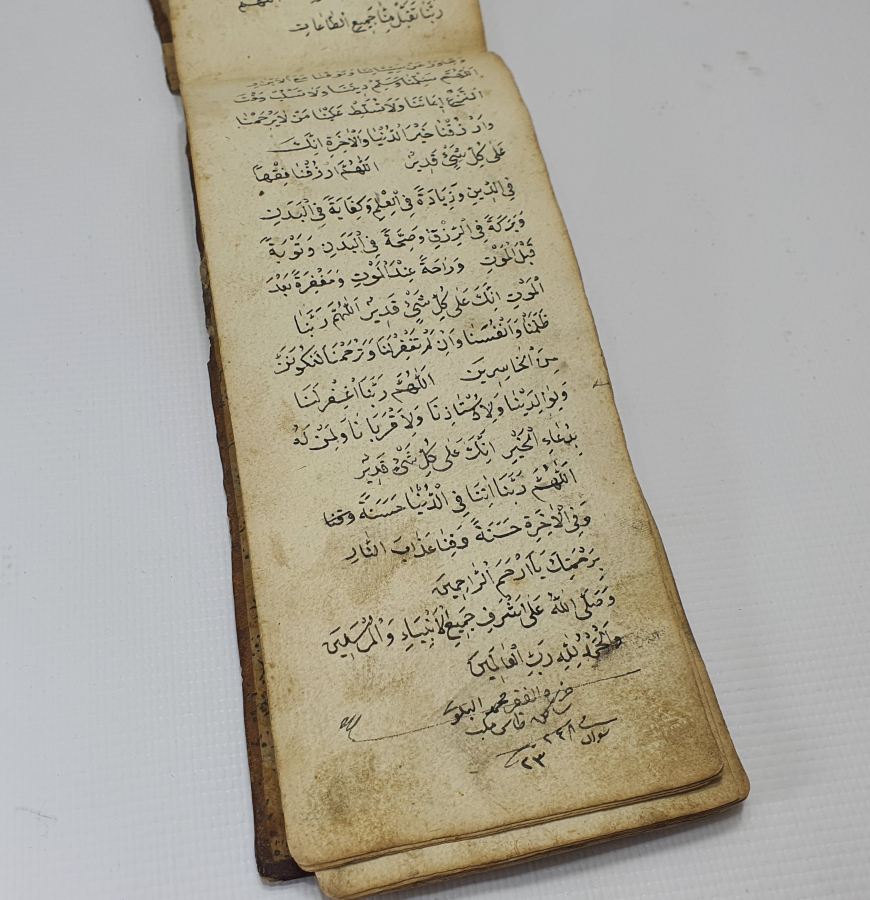 اللهم
رَبَّنَا تَقَبَّلْ مِنَّا جَمِيعَ الطَّاعَاتِ
اَللّٰهُمَّ سَلِّمْنَا وَسَلِّمْ دِينَنَا وَلَا تَسْلُبْ وَقْتَ
النَّزْعِ اِيمَانَنَا وَلَا تُسَلِّطْ عَلَيْنَا مَنْ لَا يَرْحَمُنَا
وَارْزُقْنَا خَيْرَ الدُّنْيَا وَالْاٰخِرَةِ اِنَّكَ
عَلٰى كُلِّ شَيْءٍ قَدِيرٌ اَللّٰهُمَّ ارْزُقْنَا فِقْهًا
فِي الدِّينِ وَزِيَادَةً فِي الْعِلْمِ وَكِفَايَةً فِي الْبَدَنِ
وَبَرَكَةً فِي الرِّزْقِ وَصِحَّةً فِي الْبَدَنِ وَتَوْبَةً
قَبْلَ الْمَوْتِ وَرَاحَةً عِنْدَ الْمَوْتِ وَمَغْفِرَةً بَعْدَ
الْمَوْتِ اِنَّكَ عَلٰى كُلِّ شَيْءٍ قَدِيرٌ اَللّٰهُمَّ رَبَّنَا
ظَلَمْنَا وَاَنْفُسَنَا وَاِنْ لَمْ تَغْفِرْ لَنَا وَتَرْحَمْنَا لَنَكُونَنَّ
مِنَ الْخَاسِرِينَ اَللّٰهُمَّ رَبَّنَا اغْفِرْ لَنَا
وَلِوَالِدَيْنَا وَلِاُسْتَاذِنَا وَلِاَقْرِبَائِنَا وَلِمَنْ لَهُ
بِدُعَاءِ الْخَيْرِ اِنَّكَ عَلٰى كُلِّ شَيْءٍ قَدِيرٌ
اَللّٰهُمَّ رَبَّنَا اٰتِنَا فِي الدُّنْيَا حَسَنَةً وقنا
وَفِي الْاٰخِرَةِ حَسَنَةً وَقِنَا عَذَابَ النَّارِ
بِرَحْمَتِكَ يَا اَرْحَمَ الرَّاحِمِينَ
وَصَلَّى اللّٰهُ عَلٰى اَشْرَفِ جَمِيعِ الْاَنْبِيَاءِ وَالْمُرْسَلِينَ
وَالْحَمْدُ لِلّٰهِ رَبِّ الْعَالَمِينَ
الفقير محمد
شوال
٢٣